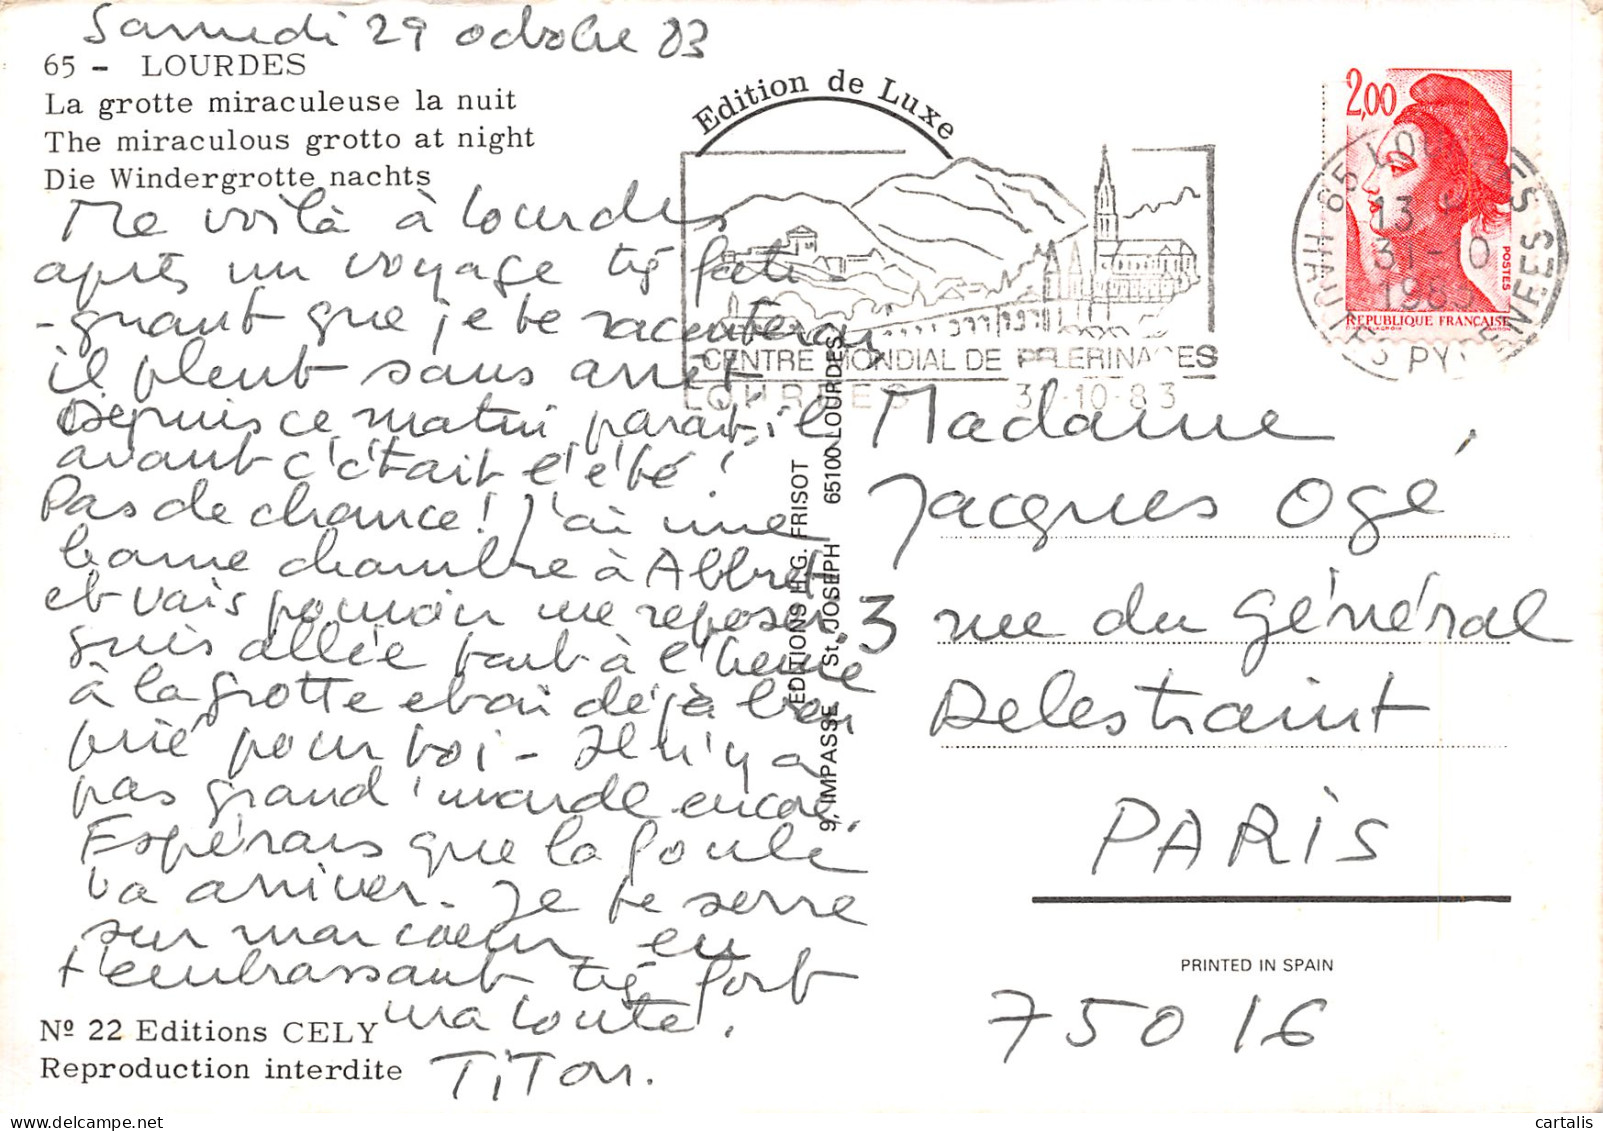 Samedi 29 octobre 83
65 - LOURDES
La grotte miraculeuse la nuit
The miraculous grotto at night
Die Windergrotte nachts
Me voilà à Lourdes
après un voyage très fati-
-guant que je te raconterai
il pleut sans arrêt
Depuis ce matin parait, il
avant c'était l'été !
Pas de chance ! J'ai une
bonne chambre à
et vais pouvoir me reposer.
suis allée tout à l'heure
à la grotte et ai déjà bien
prié pour toi - Il n'y a
pas grand'monde encore,
Espérons que la foule
va arriver. Je te serre
sur mon coeur en
t'embrassant très fort
ma
TiTon.
Nº 22 Editions CELY
Reproduction interdite
Edition de Luxe
CENTRE MONDIAL DE PELERINAGES
LOURDES 31-10-83
EDITIONS H.G. FRISOT
9, IMPASSE St. JOSEPH 65100 LOURDES
2,00
POSTES
REPUBLIQUE FRANCAISE
65 LOURDES
13 H
31-10
1983
HAUTES PYRENEES
Madame
Jacques Ogé
3 rue du Général
Delestraint
PARiS
PRINTED IN SPAIN
75016
cartalis